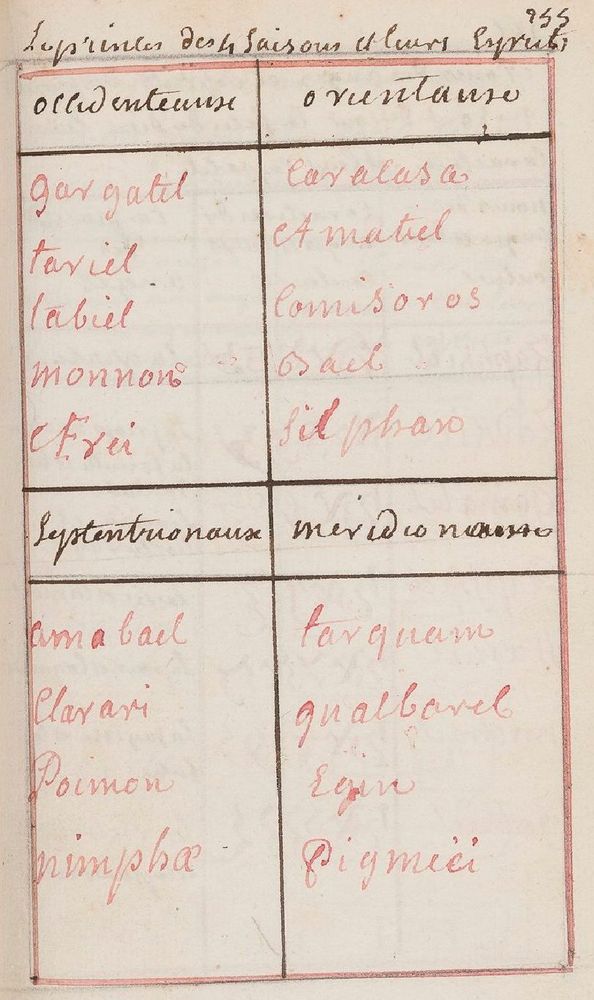 255
Les princes des 4 saisons et leurs Esprits
occidenteause
orientause
gargatel
tariel
tabiel
monnons
Et rei
Caracasa
et matiel
Comisoros
osael
Silphax
Septentrionaux
méridionause
amabael
Clarari
Poimon
nimphæ
tarquam
gualbarel
Egin
Pigmeéi